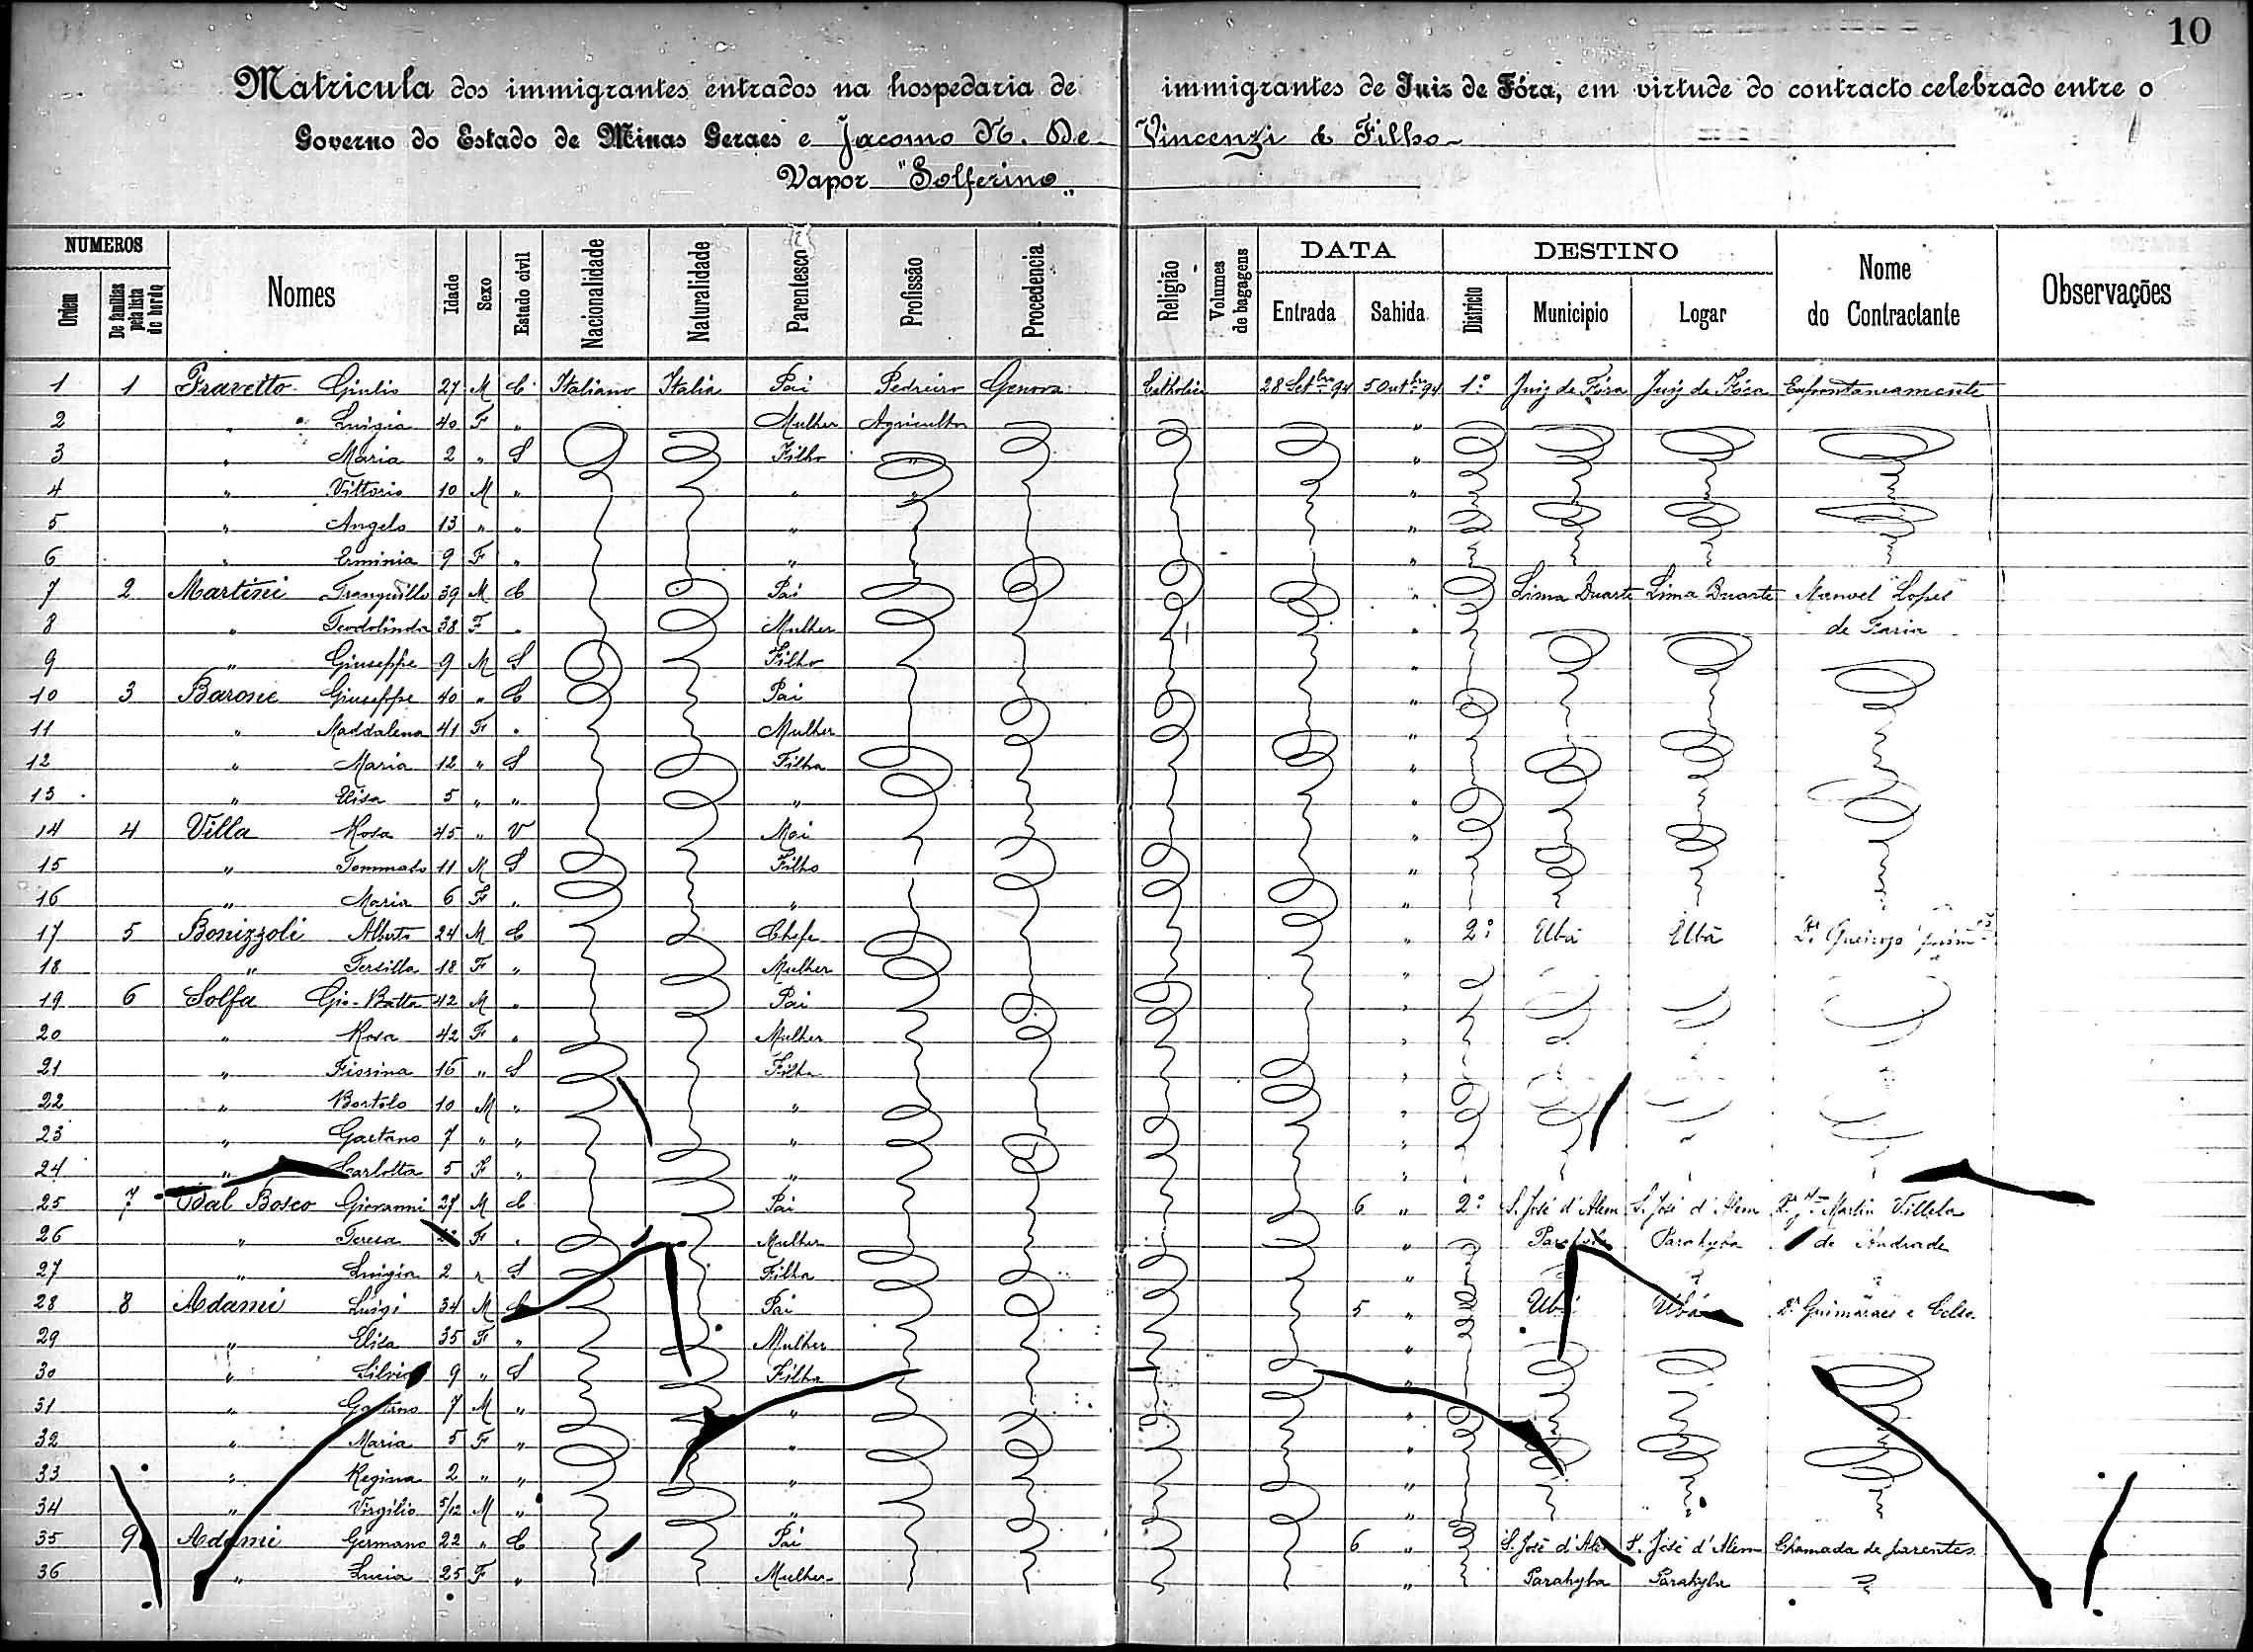 10
Matricula dos immigrantes entrados na hospedaria de immigrantes de Juiz de Fóra, em virtude do contracto celebrado entre o
Governo do Estado de Minas Geraes e Jacomo N. De Vincenzi & Filho
Vapor "Solferino"
NUMEROS Nomes Idade Sexo Estado civil Nacionalidade Naturalidade Parentesco Profissão Procedencia Religião Volumes de bagagens DATA DESTINO Nome do Contractante Observações
Ordem De familias pela lista de bordo Entrada Sahida Districto Municipio Logar
1 1 Giulio 27 M C Italiano Italia Pai Pedreiro Genova Catholica 28 Setbro 94 5 Outbro 94 1º Juiz de Fóra Juiz de Fóra
2 " Luigia 40 F " Mulher Agricultor "
3 " Maria 2 " S Filho " "
4 " Vittorio 10 M " " " "
5 " Angelo 13 " " " "
6 " Erminia 9 F " " "
7 2 Martini Tranquillo 39 M C Pai " Lima Duarte Lima Duarte Manoel Lopes
8 " Teodolinda 38 F " Mulher " de Faria
9 " Giuseppe 9 M S Filho "
10 3 Barone Giuseppe 40 " C Pai "
11 " Maddalena 41 F " Mulher "
12 " Maria 12 " S Filha "
13 " Elisa 5 " " " "
14 4 Villa Rosa 45 " V Mai "
15 " Tommaso 11 M S Filho "
16 " Maria 6 F " " "
17 5 Bonizzoli Alberto 24 M C Chefe " 2º Ubá Ubá Dr. Queiroz
18 " Tersilla 18 F " Mulher "
19 6 Solfa Gio-Batta 42 M " Pai "
20 " Rosa 42 F " Mulher "
21 " Fiorina 16 " S Filha "
22 " Bortolo 10 M " " "
23 " Gaetano 7 " " " "
24 " Carlotta 5 F " " "
25 7 Dal Bosco Giovanni 27 M C Pai 6 " 2º S. José d'Alem S. José d'Alem Martin Villela
26 " Teresa F " Mulher " Parahyba Parahyba de Andrade
27 " Luigia 2 " S Filha "
28 8 Adami Luigi 34 M C Pai 5 " Ubá Ubá Dr. Guimarães e Celso
29 " Elisa 35 F " Mulher "
30 " Silvia 9 " S Filha "
31 " Gaetano 7 M " " "
32 " Maria 5 F " " "
33 " Regina 2 " " " "
34 " Virgilio 5/12 M " " "
35 9 Adami Germano 22 " C Pai 6 " S. José d'Alem S. José d'Alem Chamada de parentes
36 " Lucia 25 F " Mulher " Parahyba Parahyba